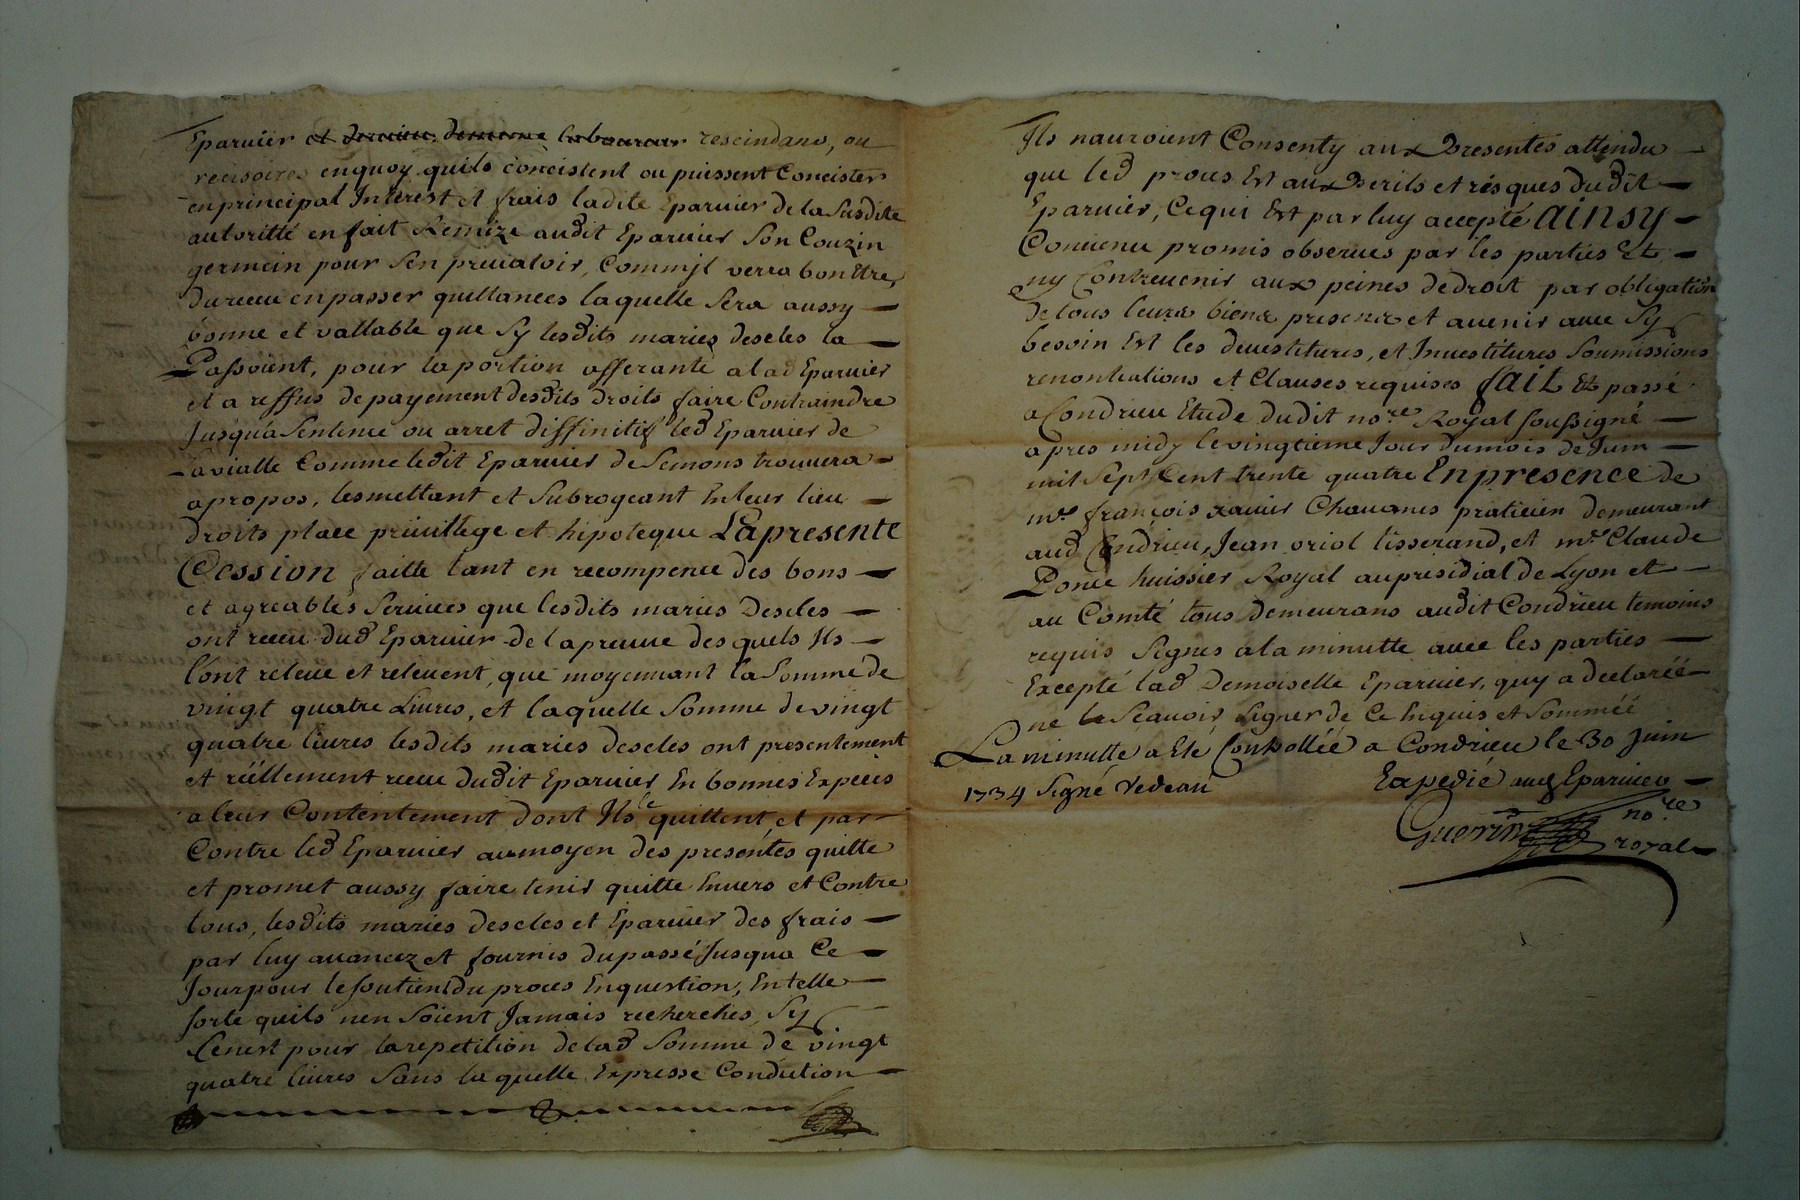 Eparuier et derniere demeure laboureur rescindans, ou
recisoires enquoy quils concistent ou puissent Concister
enprincipal Interest et frais ladite Eparuier de la Susdite
autoritté en fait Remize audit Eparuier Son Couzin
germein pour Sen preualoir, Commjl verra bon Etre,
durecu enpasser quittances laquelle Sera aussy
bonne et vallable que Sy lesdits mariés descles la
Passoient, pour laportion afferante a lad Eparuier
et a reffus de payement desdits droits faire Contraindre
Jusqu'a Sentence ou arret diffinitif led Eparuier de
Lavialle Comme ledit Eparuier de Semons trouuera
apropos, lesmettant et Subrogeant Enleur lieu
droits place priuillege et hipoteque La presente
Cession faitte tant en recompence des bons
et agreables Seruices que lesdits mariés Descles
ont receu dud Eparuier de lapreuue des quels Ils
l'ont releué et releuent, que moyennant la Somme de
vingt quatre Liures, et laquelle Somme de vingt
quatre liures lesdits mariés descles ont presentement
et réellement receu dudit Eparuier En bonnes Especes
a leur Contentement dont Ils le quittent et par
Contre led Eparuier aumoyen des presentés quitte
et promet aussy faire tenir quitte Enuers et Contre
tous, lesdits mariés descles et Eparuier des frais
par luy auancez et fournis dupassé Jusqua Ce
Jour pour le soutien du proces Enquestion, En telle
sorte quils nen Soient Jamais recherchés, Sy
Cenest pour larepetition delad Somme de vingt
quatre liures Sans laquelle Expresse Condition
Ils nauroient Consenty aux Presentes attendu
que led proces Est aux Perils et résques dudit
Eparuier, Ce qui Est par luy accepté Ainsy
Conuenu promis obseruer par les parties Et
ny Contreuenir aux peines dedroit par obligation
de tous leurs biens presens et auenir auec Sy
besoin Est les deuestitures, et Inuestitures Soumissions
renontiations et Clauses requises fait Et passé
a Condrieu Etude dudit nore Royal soussigné
apres midy levingtieme Jour dumois de Juin
mil Sept Cent trente quatre En presence de
me françois xauier Chauanes praticien demeurant
aud Condrieu, Jean oriol tisserand, et me Claude
Ponce huissier Royal aupresidial de Lyon et
au Comté tous demeurans audit Condrieu temoins
requis Signés a la minutte auec les parties
Excepté lad Demoiselle Eparuier, quy a declaréé
ne le Scauoir Signer de Ce Enquis et Somméé
La minutte a Eté Controlléé a Condrieu le 30 Juin
1734 Signé Vedeau
Expedié aud Eparuier
Guerrin nore
royal